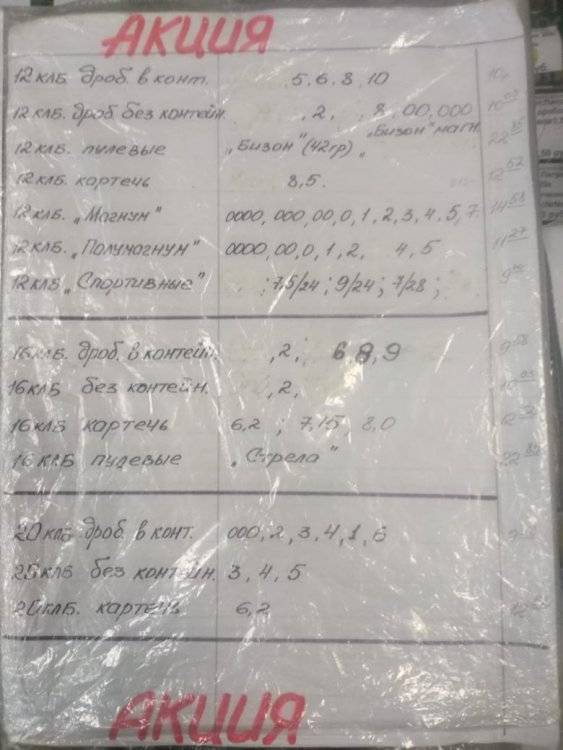 АКЦИЯ
12 клб дроб. в конт. 5, 6, 8, 10
12 клб. дроб без контейн. , 2, , 8, 00, 000 10
12 клб. пулевые „Бизон" (42гр) „Бизон" магн. 22 85
12 клб. картечь 8,5. 12 52
12 клб. „Магнум" 0000, 000, 00, 0, 1, 2, 3, 4, 5, 7 14 58
12 клб. „Полумагнум" 0000, 00, 0, 1, 2, 4, 5 11 27
12 клб „Спортивные" ; 7,5/24 ; 9/24 ; 7/28 ;
16 клб. дроб. в контейн. , 2, ; 6 8, 9 9 58
16 клб без контейн. , 2,
16 клб картечь 6,2 ; 7,15, 8,0
16 клб пулевые „Стрела" 22
20 клб дроб. в конт. 000, 2, 3, 4, 1, 6
без контейн. 3, 4, 5
20 клб. картечь 6,2
АКЦИЯ